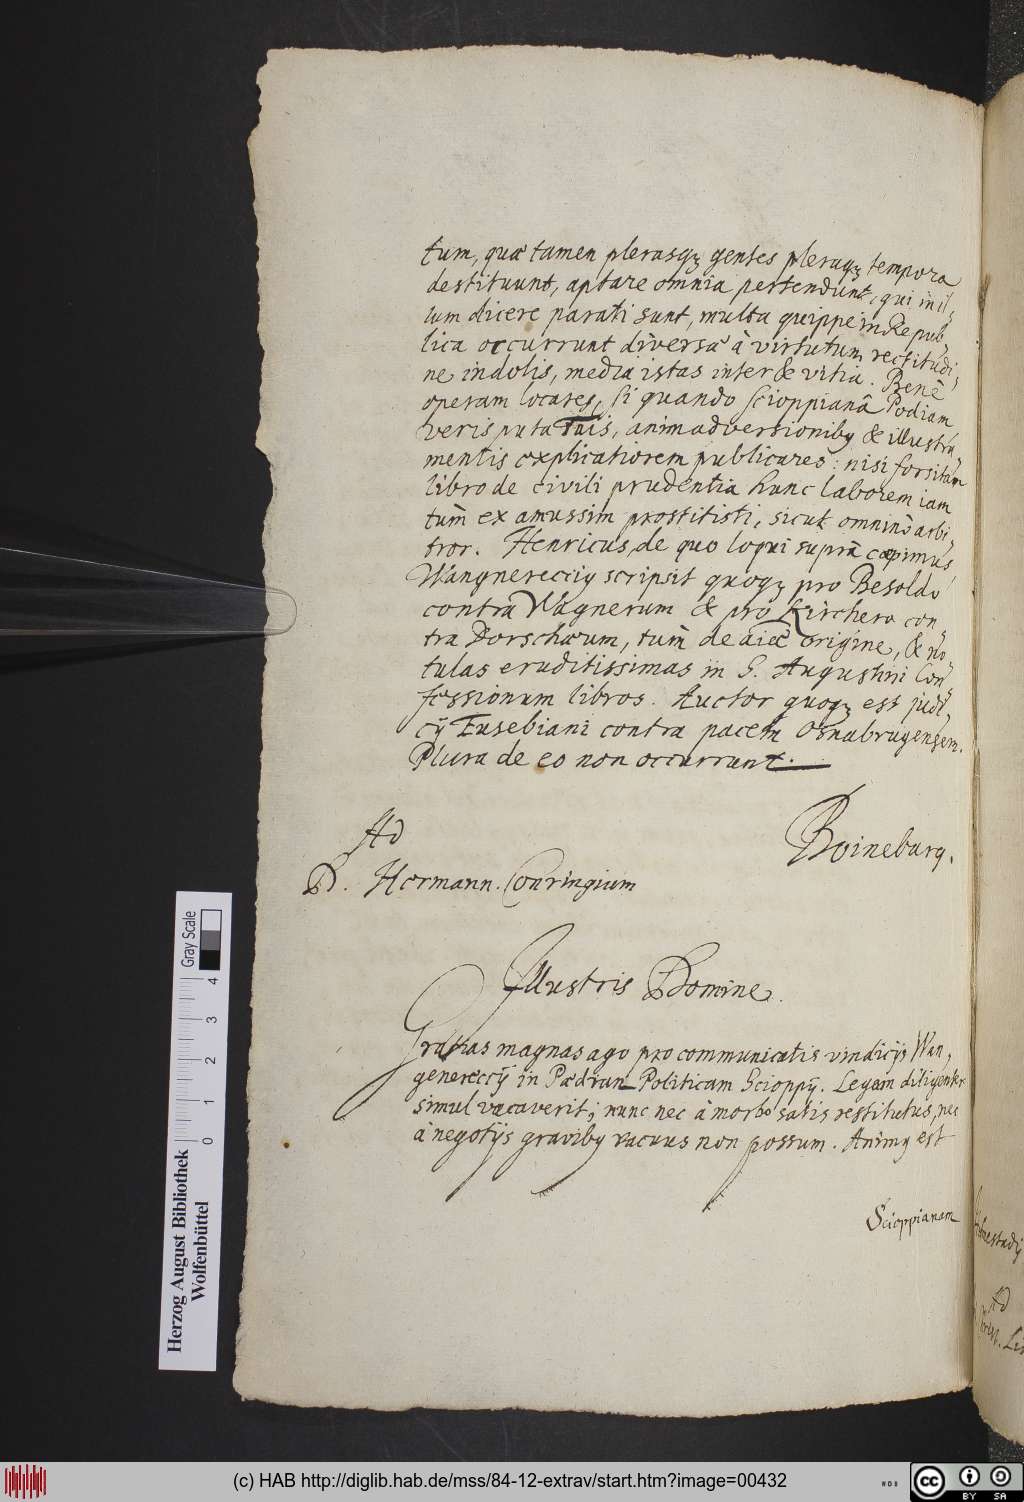 tum, quæ tamen plerasqꝫ gentes pleraqꝫ tempora
destituunt, aptare omnia pertendunt, qui in il-
lum dicere parati sunt, multa quippe in Repub-
lica occurrunt diversa à virtutum rectitudi-
ne indolis, media istas inter & vitia. Benè
operam locares, si quando Scioppianâ Pædiam
veris puta Tuis, animadversionibꝰ & illustra-
mentis explicatiorem publicares: nisi forsitan
libro de civili prudentia hunc laborem iam
tum ex amussim prostitisti, sicut omninò arbi-
tror. Henricus, de quo loqui suprà cœpimus,
Wangnerecciꝰ scripsit quoqꝫ pro Besoldo
contra Wagnerum & pro Kirchero con-
tra Dorschæum, tum de origine, & no-
tulas eruditissimas in S. Augustini Con-
fessionum libros. Auctor quoqꝫ est judi-
cÿ Eusebiani contra pacem Osnabrugensem.
Plura de eo non occurrunt.
Boineburg.
Ad
D. Hermann. Conringium
Illustris Domine.
Gratias magnas ago pro communicatis vindicÿs Wan-
gnereccÿ in Pædian Politicam Scioppÿ. Legam diligenter
simul vacaverit; nunc nec à morbo satis restitutus, nec
à negotÿs gravibꝰ vacuus non possum. Animꝰ est
Scioppianam
Ad
Herzog August Bibliothek
Wolfenbüttel
0 1 2 3 4
Gray Scale
(c) HAB http://diglib.hab.de/mss/84-12-extrav/start.htm?image=00432
cc BY SA